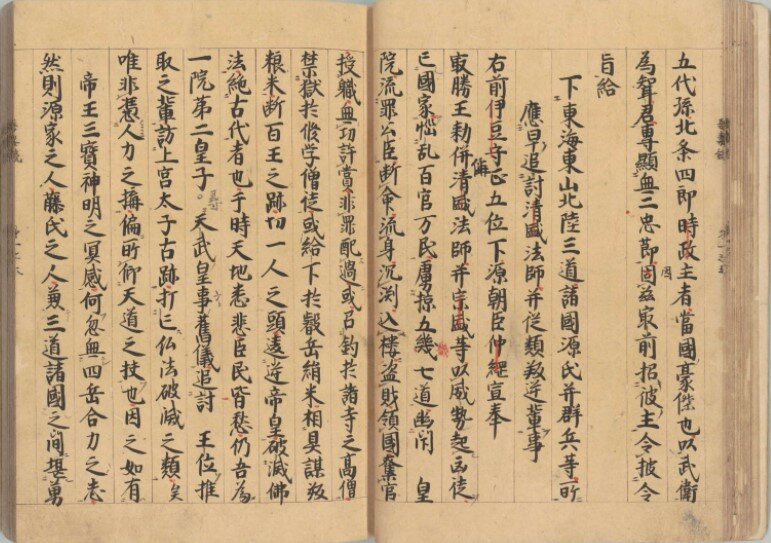 五代孫北条四郎時政主者當國豪傑也以武衛
為聟君専顕無二忠莭因玆冣前招彼主令披令
旨給
下東海東山北陸三道諸國源氏并群兵等所
應早追討清盛法師并従類叛逆輩事
右前伊豆守正五位下源朝臣仲綱宣奉
冣勝王勅偁清盛法師并宗盛等以威勢起凶徒
亡國家悩乱百官万民虜掠五畿七道幽閇 皇
院流罪公臣断命流身沉渕込楼盗財領國奪官
授職無功許賞非罪配過或召釣於諸寺之髙僧
禁獄於修学僧徒或給下於叡岳絹米相具謀叛
粮米断百王之跡切一人之頭違逆帝皇破滅佛
法絶古代者也于時天地悉悲臣民皆愁仍吾為
一院第二皇子尋天武皇事舊儀追討 王位推
取之輩訪上宮太子古跡打亡仏法破滅之類矣
唯非憑人力之搆偏所仰天道之扶也因之如有
帝王三寳神明之冥感何忽無四岳合力之志
然則源家之人藤氏之人兼三道諸國之间堪勇